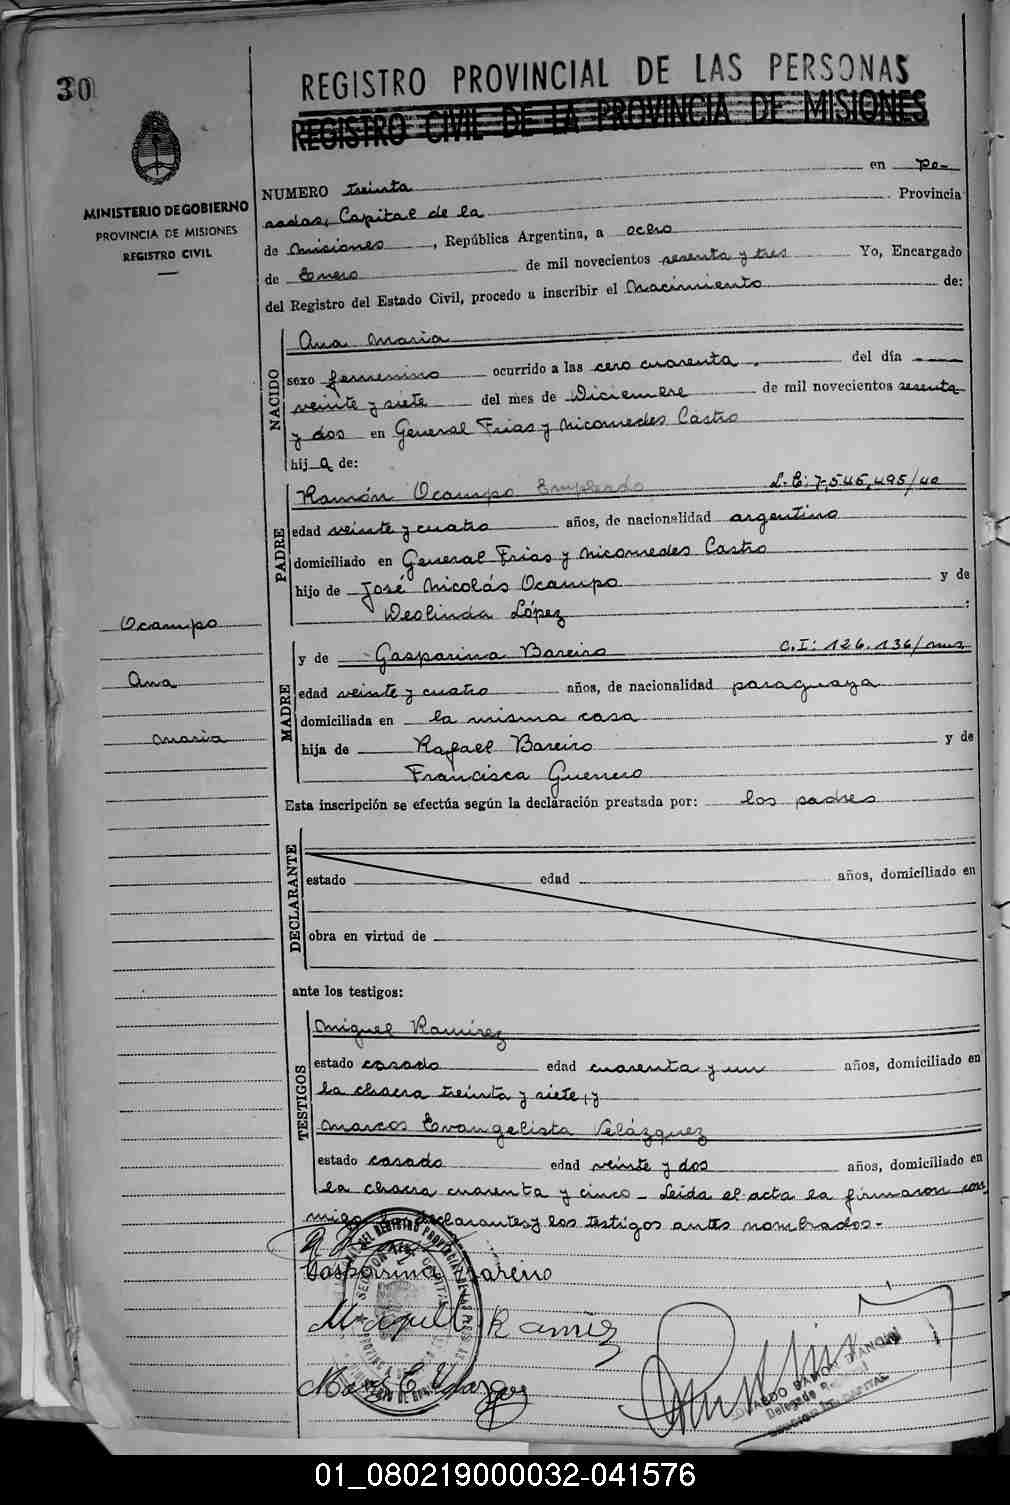 30
REGISTRO PROVINCIAL DE LAS PERSONAS
REGISTRO CIVIL DE LA PROVINCIA DE MISIONES
MINISTERIO DE GOBIERNO
PROVINCIA DE MISIONES
REGISTRO CIVIL
NUMERO treinta en Po-
sadas, Capital de la Provincia
de Misiones, República Argentina, a ocho
de Enero de mil novecientos sesenta y tres Yo, Encargado
del Registro del Estado Civil, procedo a inscribir el Nacimiento de:
NACIDO
Ana Maria
sexo femenino ocurrido a las cero cuarenta. del día
veinte y siete del mes de Diciembre de mil novecientos sesenta
y dos en General Frias y Nicomedes Castro
hija de:
PADRE
Ramón Ocampo Empleado L.E: 7,545,495/40
edad veinte y cuatro años, de nacionalidad argentino
domiciliado en General Frias y Nicomedes Castro
hijo de José Nicolás Ocampo y de
Deolinda López :
Ocampo
Ana
Maria
MADRE
y de Gasparina Bareiro C.I: 126.136/mnz
edad veinte y cuatro años, de nacionalidad paraguaya
domiciliada en la misma casa
hija de Rafael Bareiro y de
Francisca Guerrero
Esta inscripción se efectúa según la declaración prestada por: los padres
DECLARANTE
estado edad años, domiciliado en
obra en virtud de
ante los testigos:
TESTIGOS
Miguel Ramirez
estado casado edad cuarenta y un años, domiciliado en
la chacra treinta y siete, y
Marcos Evangelista Velázquez
estado casado edad veinte y dos años, domiciliado en
la chacra cuarenta y cinco_ Leida el acta la firmaron con-
migo declarantes y los testigos antes nombrados.-
Gasparina Bareiro
Miguel Ramirez
RAMON
Delegado
CAPITAL
01_080219000032-041576